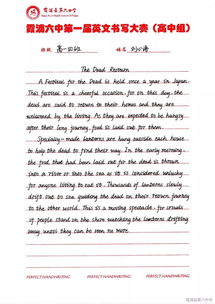 霞浦六中第一届英文书写大赛（高中组）
班级 高一四班 姓名
The Dead Return
A Festival for the Dead is held once a year in Japan.
This festival is a cheerful occasion, for on this day, the
dead are said to return to their homes and they are
welcomed by the living. As they are expected to be hungry
after their long journey, food is laid out for them.
Specially-made lanterns are hung outside each house
to help the dead to find their way. In the early morning,
the food that had been laid out for the dead is thrown
into a river or into the sea as it is considered unlucky
for anyone living to eat it. Thousands of lanterns slowly
drift out to sea guiding the dead on their return journey
to the other world. This is a moving spectacle, for crowds
of people stand on the shore watching the lanterns drifting
away until they can be seen no more.
PERFECT HANDWRITING PERFECT HANDWRITING PERFECT HANDWRITING